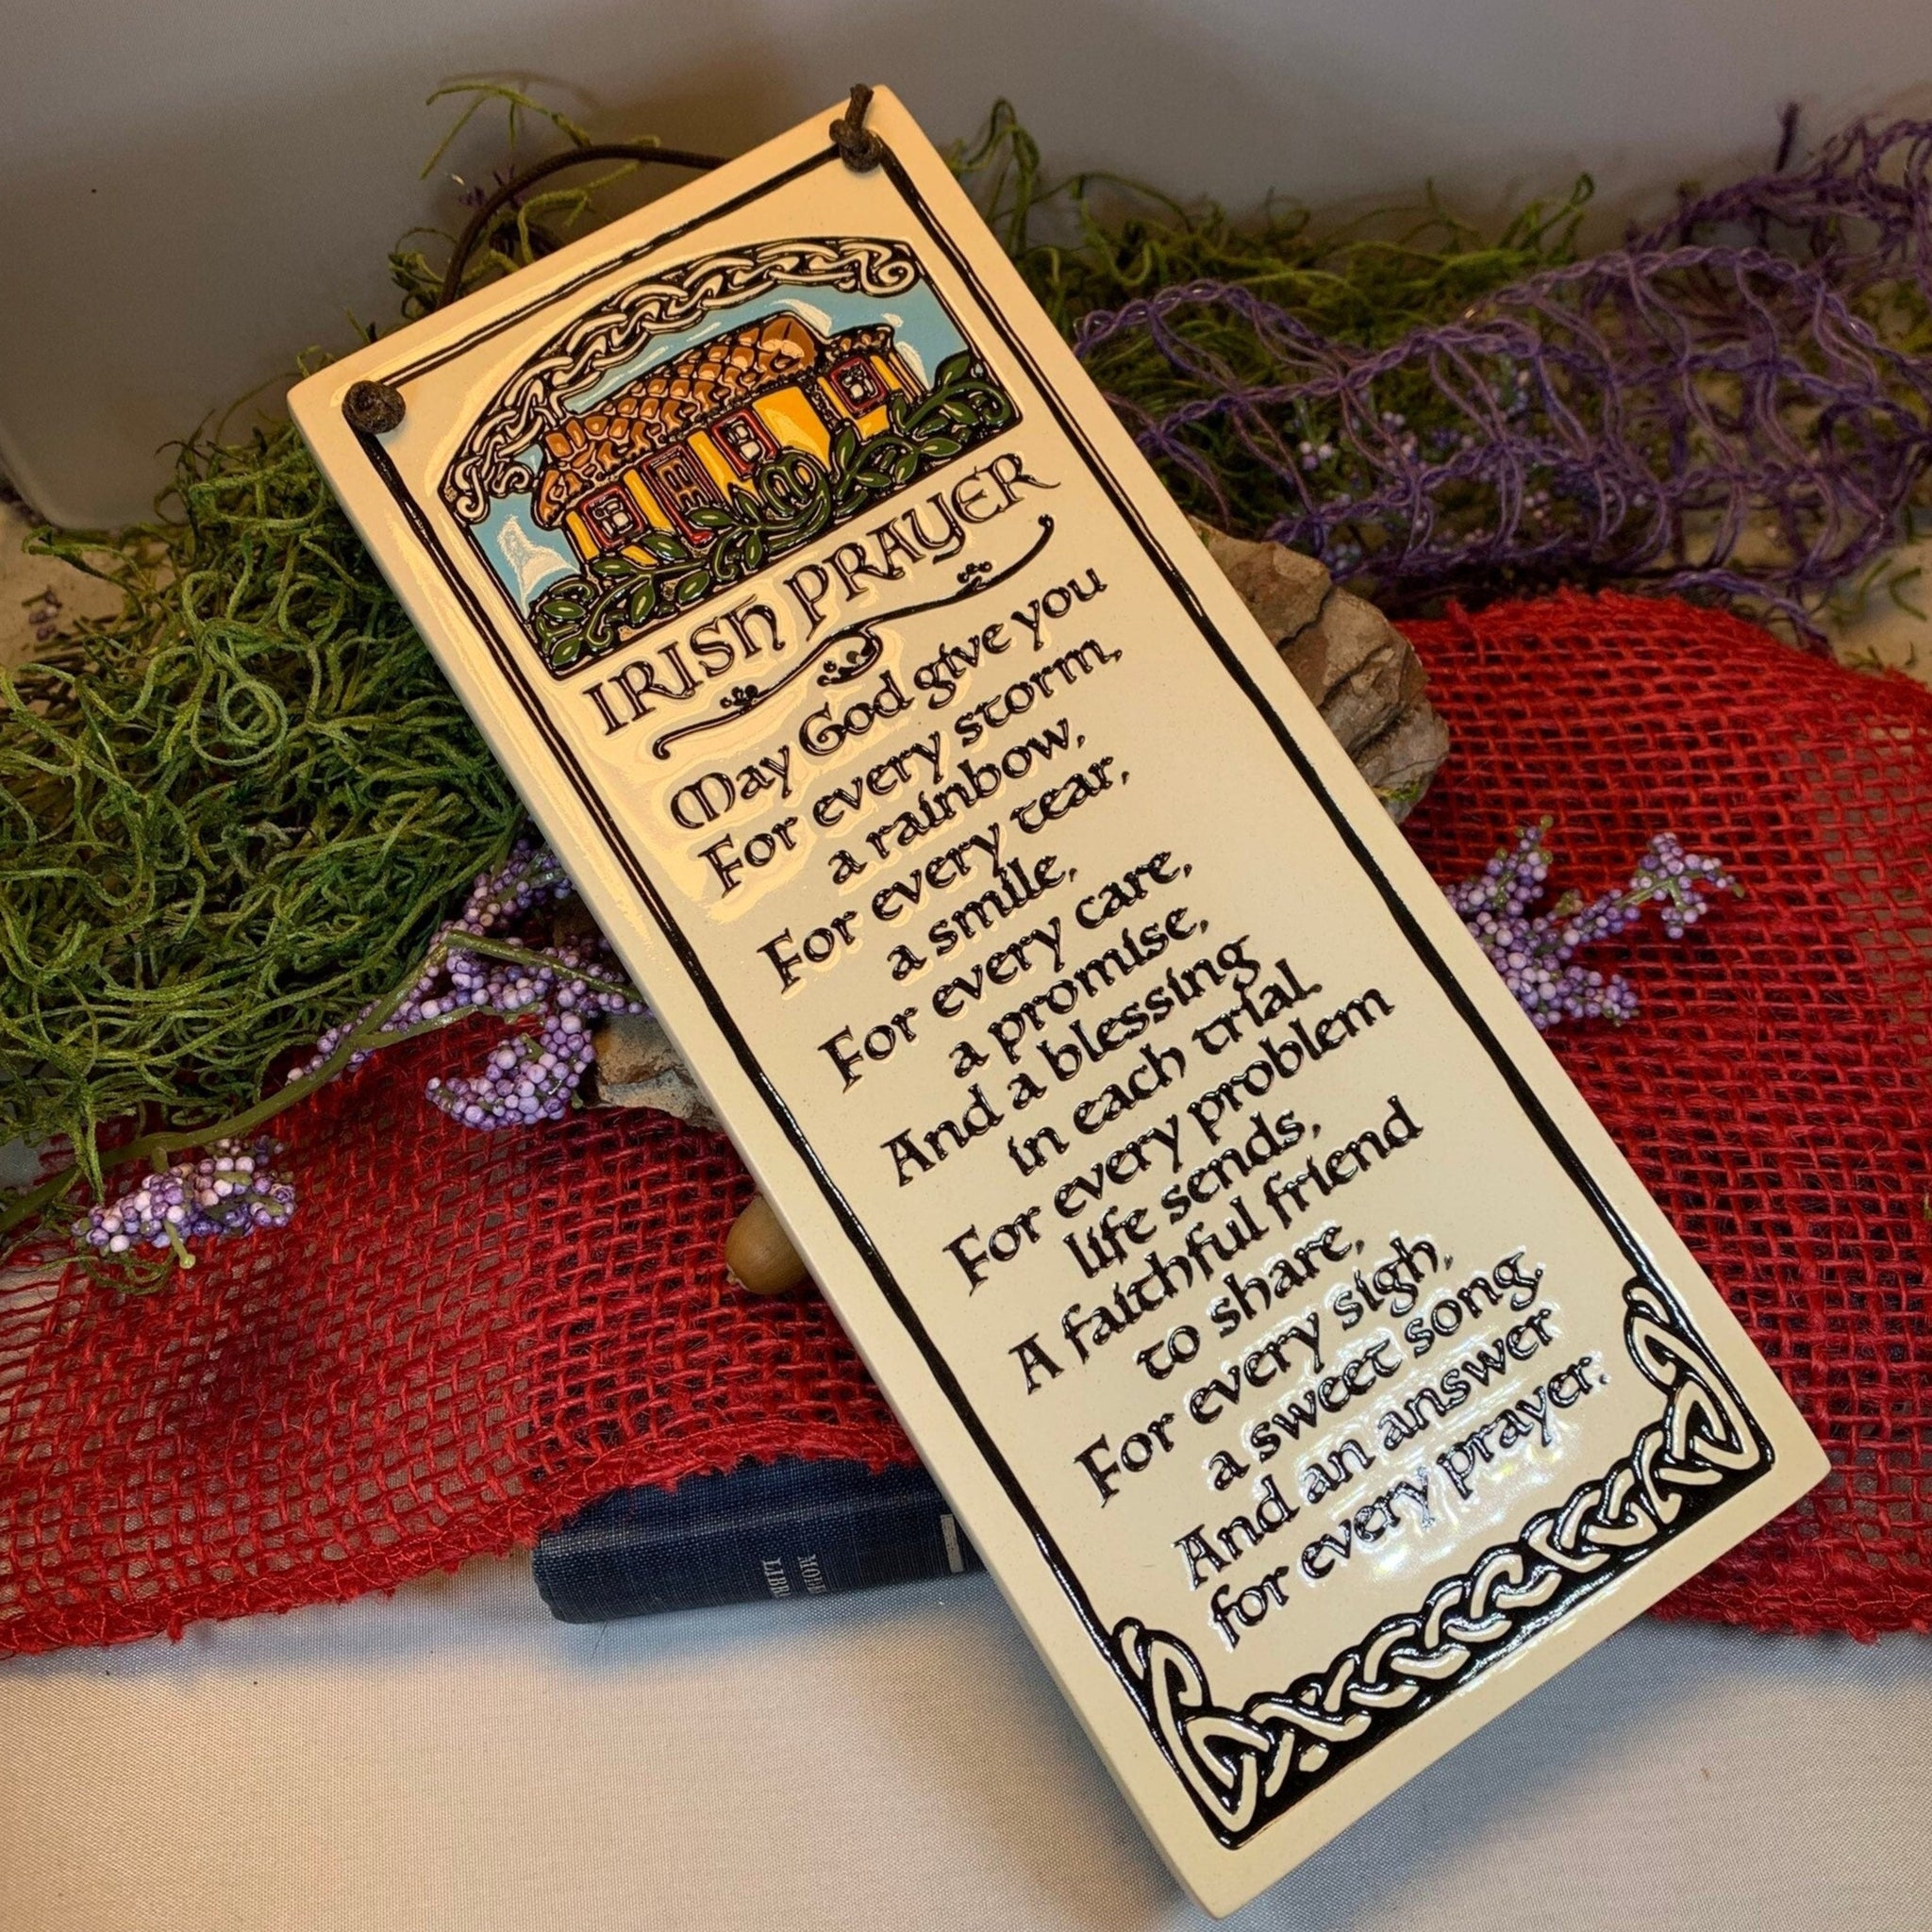 IRISH PRAYER
May God give you
For every storm,
a rainbow,
For every tear,
a smile,
For every care,
a promise,
And a blessing
in each trial.
For every problem
life sends,
A faithful friend
to share,
For every sigh,
a sweet song,
And an answer
for every prayer.